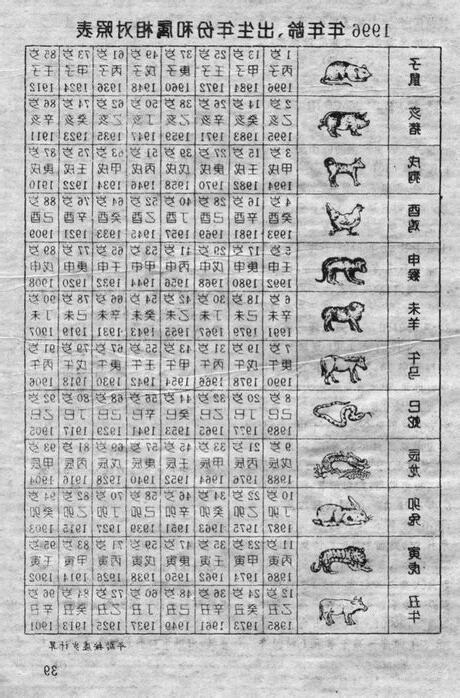 1996 年年龄、出生年份和属相对照表
子鼠
1岁 13岁 25岁 37岁 49岁 61岁 73岁 85岁
丙子 甲子 壬子 庚子 戊子 丙子 甲子 壬子
1996 1984 1972 1960 1948 1936 1924 1912
亥猪
2岁 14岁 26岁 38岁 50岁 62岁 74岁 86岁
乙亥 癸亥 辛亥 己亥 丁亥 乙亥 癸亥 辛亥
1995 1983 1971 1959 1947 1935 1923 1911
戌狗
3岁 15岁 27岁 39岁 51岁 63岁 75岁 87岁
甲戌 壬戌 庚戌 戊戌 丙戌 甲戌 壬戌 庚戌
1994 1982 1970 1958 1946 1934 1922 1910
酉鸡
4岁 16岁 28岁 40岁 52岁 64岁 76岁 88岁
癸酉 辛酉 己酉 丁酉 乙酉 癸酉 辛酉 己酉
1993 1981 1969 1957 1945 1933 1921 1909
申猴
5岁 17岁 29岁 41岁 53岁 65岁 77岁 89岁
壬申 庚申 戊申 丙申 甲申 壬申 庚申 戊申
1992 1980 1968 1956 1944 1932 1920 1908
未羊
6岁 18岁 30岁 42岁 54岁 66岁 78岁 90岁
辛未 己未 丁未 乙未 癸未 辛未 己未 丁未
1991 1979 1967 1955 1943 1931 1919 1907
午马
7岁 19岁 31岁 43岁 55岁 67岁 79岁 91岁
庚午 戊午 丙午 甲午 壬午 庚午 戊午 丙午
1990 1978 1966 1954 1942 1930 1918 1906
巳蛇
8岁 20岁 32岁 44岁 56岁 68岁 80岁 92岁
己巳 丁巳 乙巳 癸巳 辛巳 己巳 丁巳 乙巳
1989 1977 1965 1953 1941 1929 1917 1905
辰龙
9岁 21岁 33岁 45岁 57岁 69岁 81岁 93岁
戊辰 丙辰 甲辰 壬辰 庚辰 戊辰 丙辰 甲辰
1988 1976 1964 1952 1940 1928 1916 1904
卯兔
10岁 22岁 34岁 46岁 58岁 70岁 82岁 94岁
丁卯 乙卯 癸卯 辛卯 己卯 丁卯 乙卯 癸卯
1987 1975 1963 1951 1939 1927 1915 1903
寅虎
11岁 23岁 35岁 47岁 59岁 71岁 83岁 95岁
丙寅 甲寅 壬寅 庚寅 戊寅 丙寅 甲寅 壬寅
1986 1974 1962 1950 1938 1926 1914 1902
丑牛
12岁 24岁 36岁 48岁 60岁 72岁 84岁 96岁
乙丑 癸丑 辛丑 己丑 丁丑 乙丑 癸丑 辛丑
1985 1973 1961 1949 1937 1925 1913 1901
年龄按虚岁计算
39